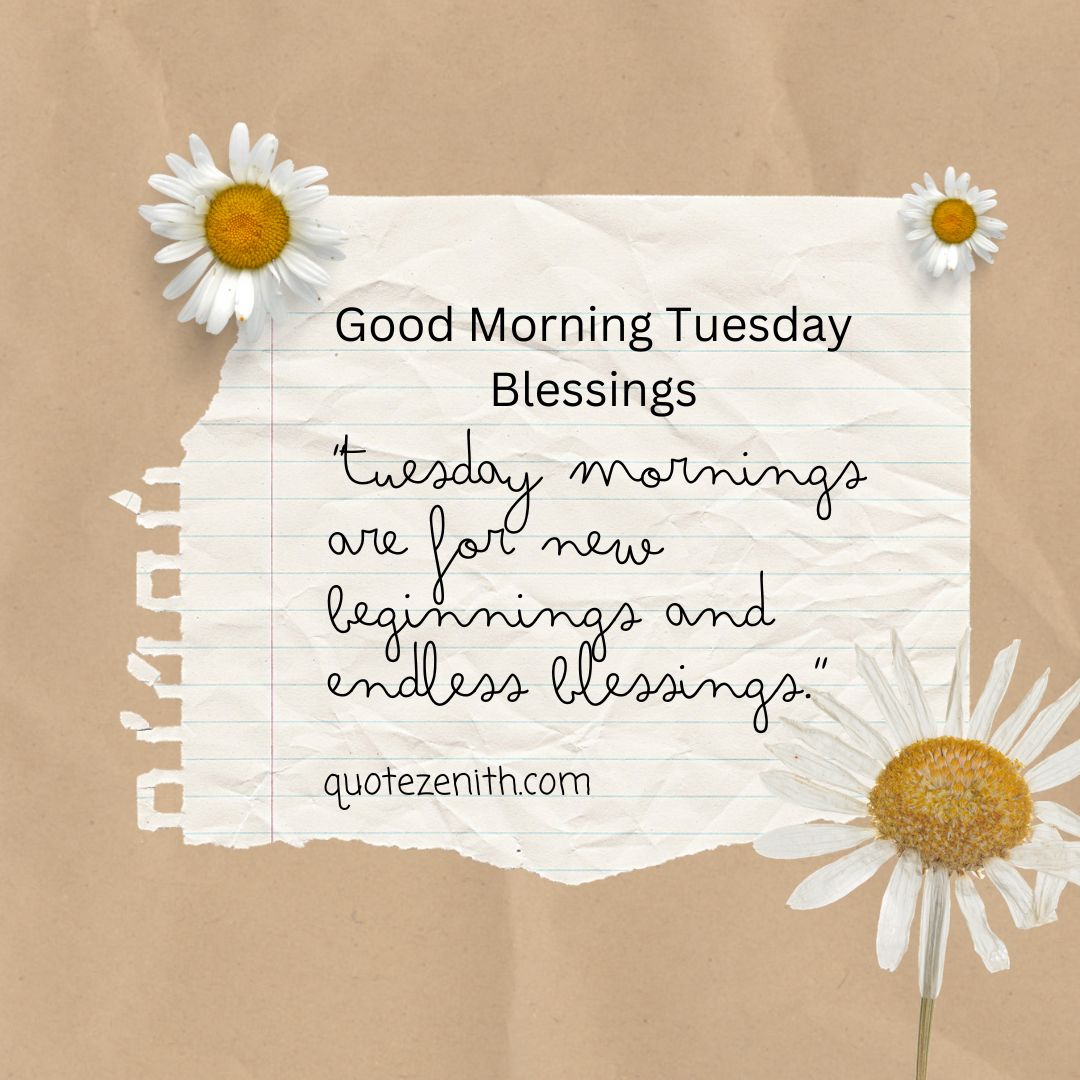 Good Morning Tuesday
Blessings
"tuesday mornings
are for new
beginnings and
endless blessings."
quotezenith.com